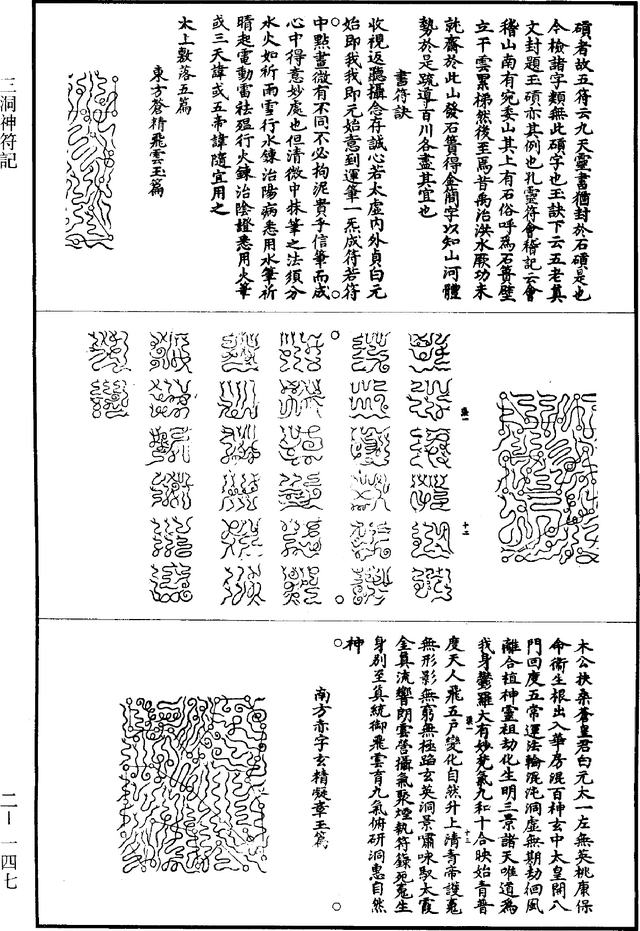 三洞神符記
二—一四七
碩者故五符云九天靈書猶封於石碩是也
今檢諸字類無此碩字也玉訣下云五老真
文封題玉碩亦其例也孔靈符會稽記云會
稽山南有宛委山其上有石俗呼為石簣壁
立干雲累梯然後至焉昔禹治洪水厥功未
就齋於此山發石簣得金簡字以知山河體
勢於是疏導百川各盡其宜也
書符訣
收視返聽攝念存誠心若太虛內外貞白元
始即我我即元始意到運筆一炁成符若符
中點畫微有不同不必拘泥貴乎信筆而成
心中得意妙處也但清微中抹筆之法須分
水火如祈雨雪行水鍊治陽病悉用水筆祈
晴起電動雷祛瘟行火鍊治陰證悉用火筆
或三天諱或五帝諱隨宜用之
太上敷落五篇
東方蒼精飛雲玉篇
木公扶桑蒼皇君白元太一左無英桃康保
命衛生根出入華房混百神玄中太皇開八
門回度五常運法輪混沌洞虛無期劫佪風
離合植神靈祖劫化生明三景諸天唯道為
我身鬱羅大有妙梵氣九和十合映始青普
度天人飛五戶變化自然升上清青帝護魂
無形影無窮無極蹈玄英洞景嘯咏馭太霞
金真流響朗雲營攝氣聚煙執符籙死魂生
身別至真統御飛雲育九氣俯研洞惠自然
神
南方赤字玄精凝章玉篇
張一
十二
張一
十三